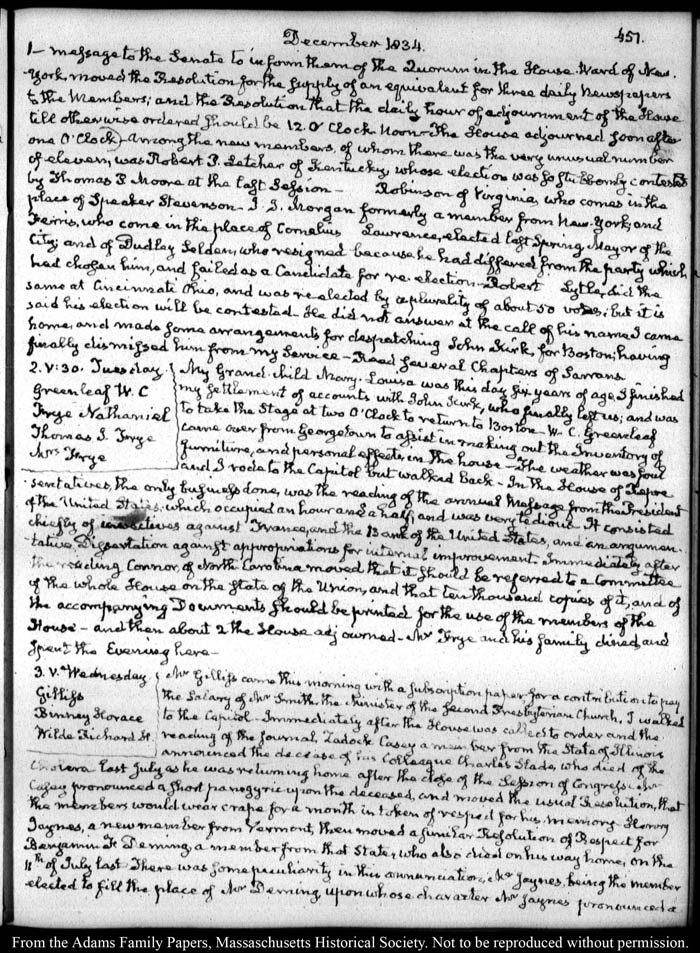 December 1834.
457.
1— message to the Senate to inform them of the Quorum in the House. Ward of New-
York, moved the Resolution for the supply of an equivalent for three daily Newspapers
to the Members; and the Resolution that the daily hour of adjournment of the House
till otherwise ordered should be 12. O'Clock Noon— The House adjourned soon after
one O'Clock— Among the new members, of whom there was the very unusual number
of eleven, was Robert P. Letcher of Kentucky, whose election was so stubbornly contested
by Thomas P. Moore at the last Session— Robinson of Virginia, who comes in the
place of Speaker Stevenson— J. J. Morgan formerly a member from New-York, and
Ferris, who come in the place of Cornelius Lawrence, elected last Spring Mayor of the
City; and of Dudley Selden, who resigned because he had differed from the party which
had chosen him, and failed as a Candidate for re-election— Robert Lytle, did the
same at Cincinnati Ohio, and was re-elected by a plurality of about 50 votes; but it is
said his election will be contested. He did not answer at the call of his name. I came
home, and made some arrangements for despatching John Kirk, for Boston; having
finally dismissed him from my Service— Read several Chapters of Sarrans.
2. V:30. Tuesday.
Greenleaf W. C
Frye Nathaniel
Thomas J. Frye
Mrs Frye
My Grand-Child Mary-Louisa was this day six years of age. I finished
my settlement of accounts with John Kirk, who finally left us; and was
to take the Stage at two O'Clock to return to Boston— W. C. Greenleaf
came over from Georgetown to assist in making out the Inventory of
furniture, and personal effects in the house— The weather was foul
and I rode to the Capitol but walked back— In the House of Repre
sentatives, the only business done, was the reading of the annual Message from the President
of the United States, which occupied an hour and a half, and was very tedious. It consisted
chiefly of invectives against France, and the Bank of the United States, and an argumen-
tative Dissertation against appropriations for internal improvement. Immediately after
the reading Connor, of North Carolina moved that it should be referred to a Committee
of the whole House on the State of the Union, and that ten thousand copies of it, and of
the accompanying Documents should be printed for the use of the members of the
House— and then about 2 the House adjourned— Mr Frye and his family dined, and
spent the Evening here—
3. V. Wednesday.
Gilliss
Binney Horace
Wilde Richard H.
Mr Gilliss came this morning with a subscription paper for a contribution to pay
the Salary of Mr Smith, the Minister of the Second Presbyterian Church, I walked
to the Capitol— Immediately after the House was called to order and the
reading of the Journal, Zadock Casey a member from the State of Illinois
announced the decease of his Colleague Charles Slade, who died of the
Cholera last July as he was returning home after the close of the Session of Congress. Mr
Casey pronounced a short panegyric upon the deceased, and moved the usual Resolution, that
the members would wear crape for a month in token of respect for his memory. Henry
Jaynes, a new member from Vermont, then moved a similar Resolution of Respect for
Benjamin F. Deming, a member from that State, who also died on his way home, on the
11th of July last. There was some peculiarity in this annunciation, Mr Jaynes, being the member
elected to fill the place of Mr Deming, upon whose character Mr Jaynes pronounced a
From the Adams Family Papers, Massachusetts Historical Society. Not to be reproduced without permission.